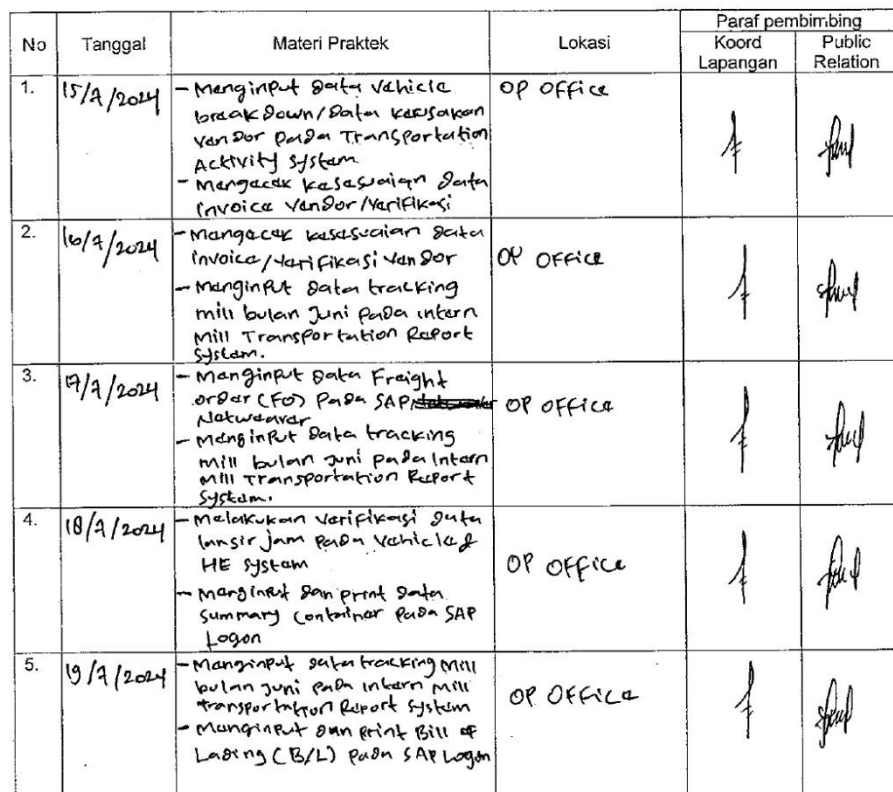 No Tanggal Materi Praktek Lokasi Paraf pembimbing
Koord Lapangan Public Relation
1. 15/7/2024 - Menginput data vehicle OP Office
breakdown/data kerusakan
vendor pada Transportation
Activity System
- Mengecek kesesuaian data
invoice vendor/verifikasi
2. 16/7/2024 - Mengecek kesesuaian data
invoice/verifikasi vendor OP Office
- Menginput data tracking
mill bulan juni pada intern
Mill Transportation Report
System.
3. 17/7/2024 - Menginput data Freight
order (FO) pada SAP OP Office
Netweaver
- Menginput data tracking
mill bulan juni pada Intern
Mill Transportation Report
System.
4. 18/7/2024 - Melakukan verifikasi data
lansir jam pada Vehicle &
HE system OP Office
- Menginput dan print data
Summary Container pada SAP
Logon
5. 19/7/2024 - Menginput data tracking Mill
bulan juni pada intern mill
transportation Report System OP Office
- Menginput dan print Bill of
Lading (B/L) pada SAP Logon